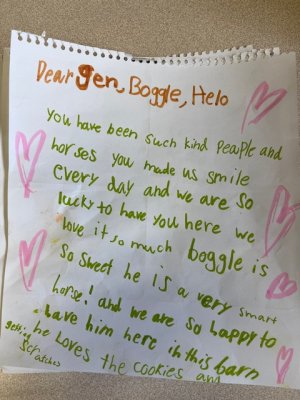 Dear gen, Boggle, Helo
you have been such kind peaple and
horses you made us smile
every day and we are so
lucky to have you here we
love it so much boggle is
so sweet he is a very smart
horse! and we are so happy to
have him here in this barn
he Loves the cookies and
getting
scratches